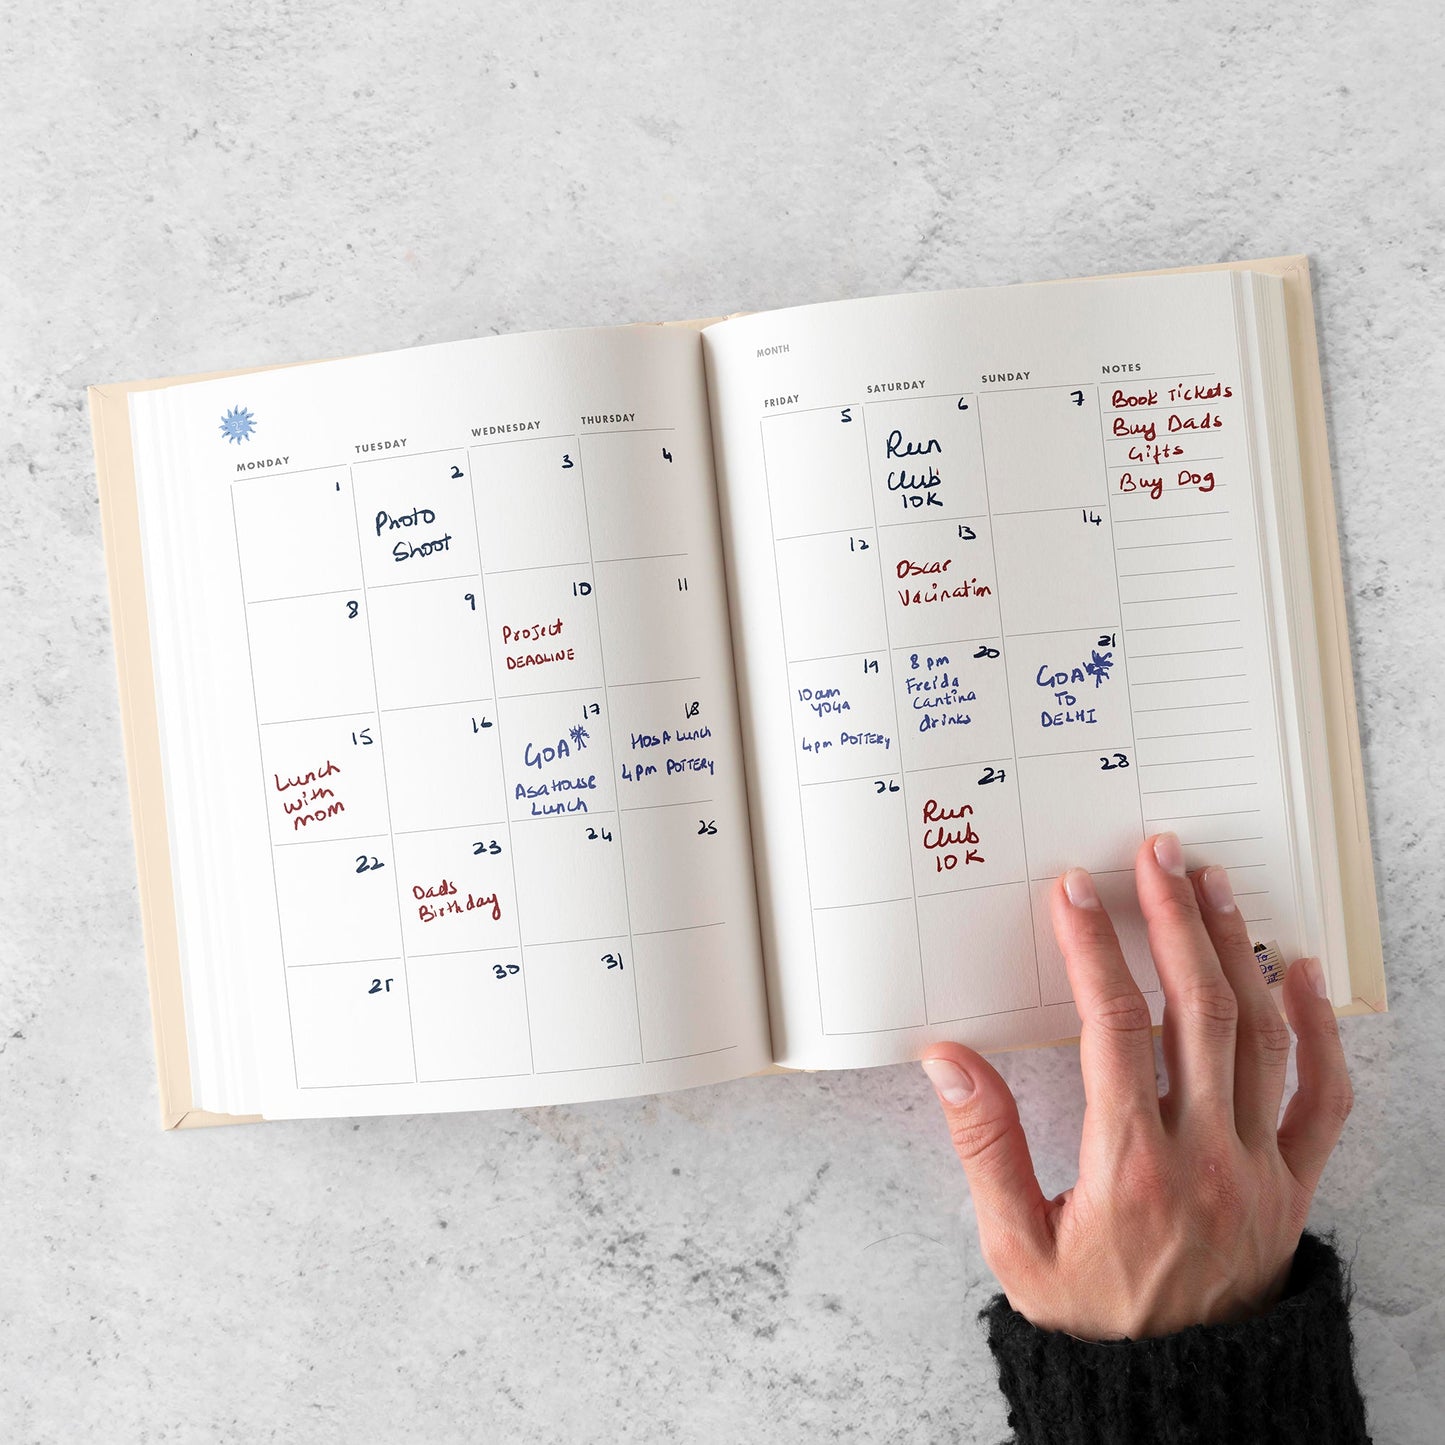 MONDAY TUESDAY WEDNESDAY THURSDAY
1 2 3 4
Photo
Shoot
8 9 10 11
Project
DEADLINE
15 16 17 18
Lunch
with
mom
GOA
AsaHouse
Lunch
HOSA Lunch
4pm POTTERY
22 23 24 25
Dads
Birthday
29 30 31
MONTH
FRIDAY SATURDAY SUNDAY NOTES
5 6 7
Run
Club
10K
Book Tickets
Buy Dads
Gifts
Buy Dog
12 13 14
Oscar
Vacination
19 20 21
10am
YOGA
4pm POTTERY
8pm
Freida
Cantina
drinks
GOA
TO
DELHI
26 27 28
Run
Club
10K
To
Do